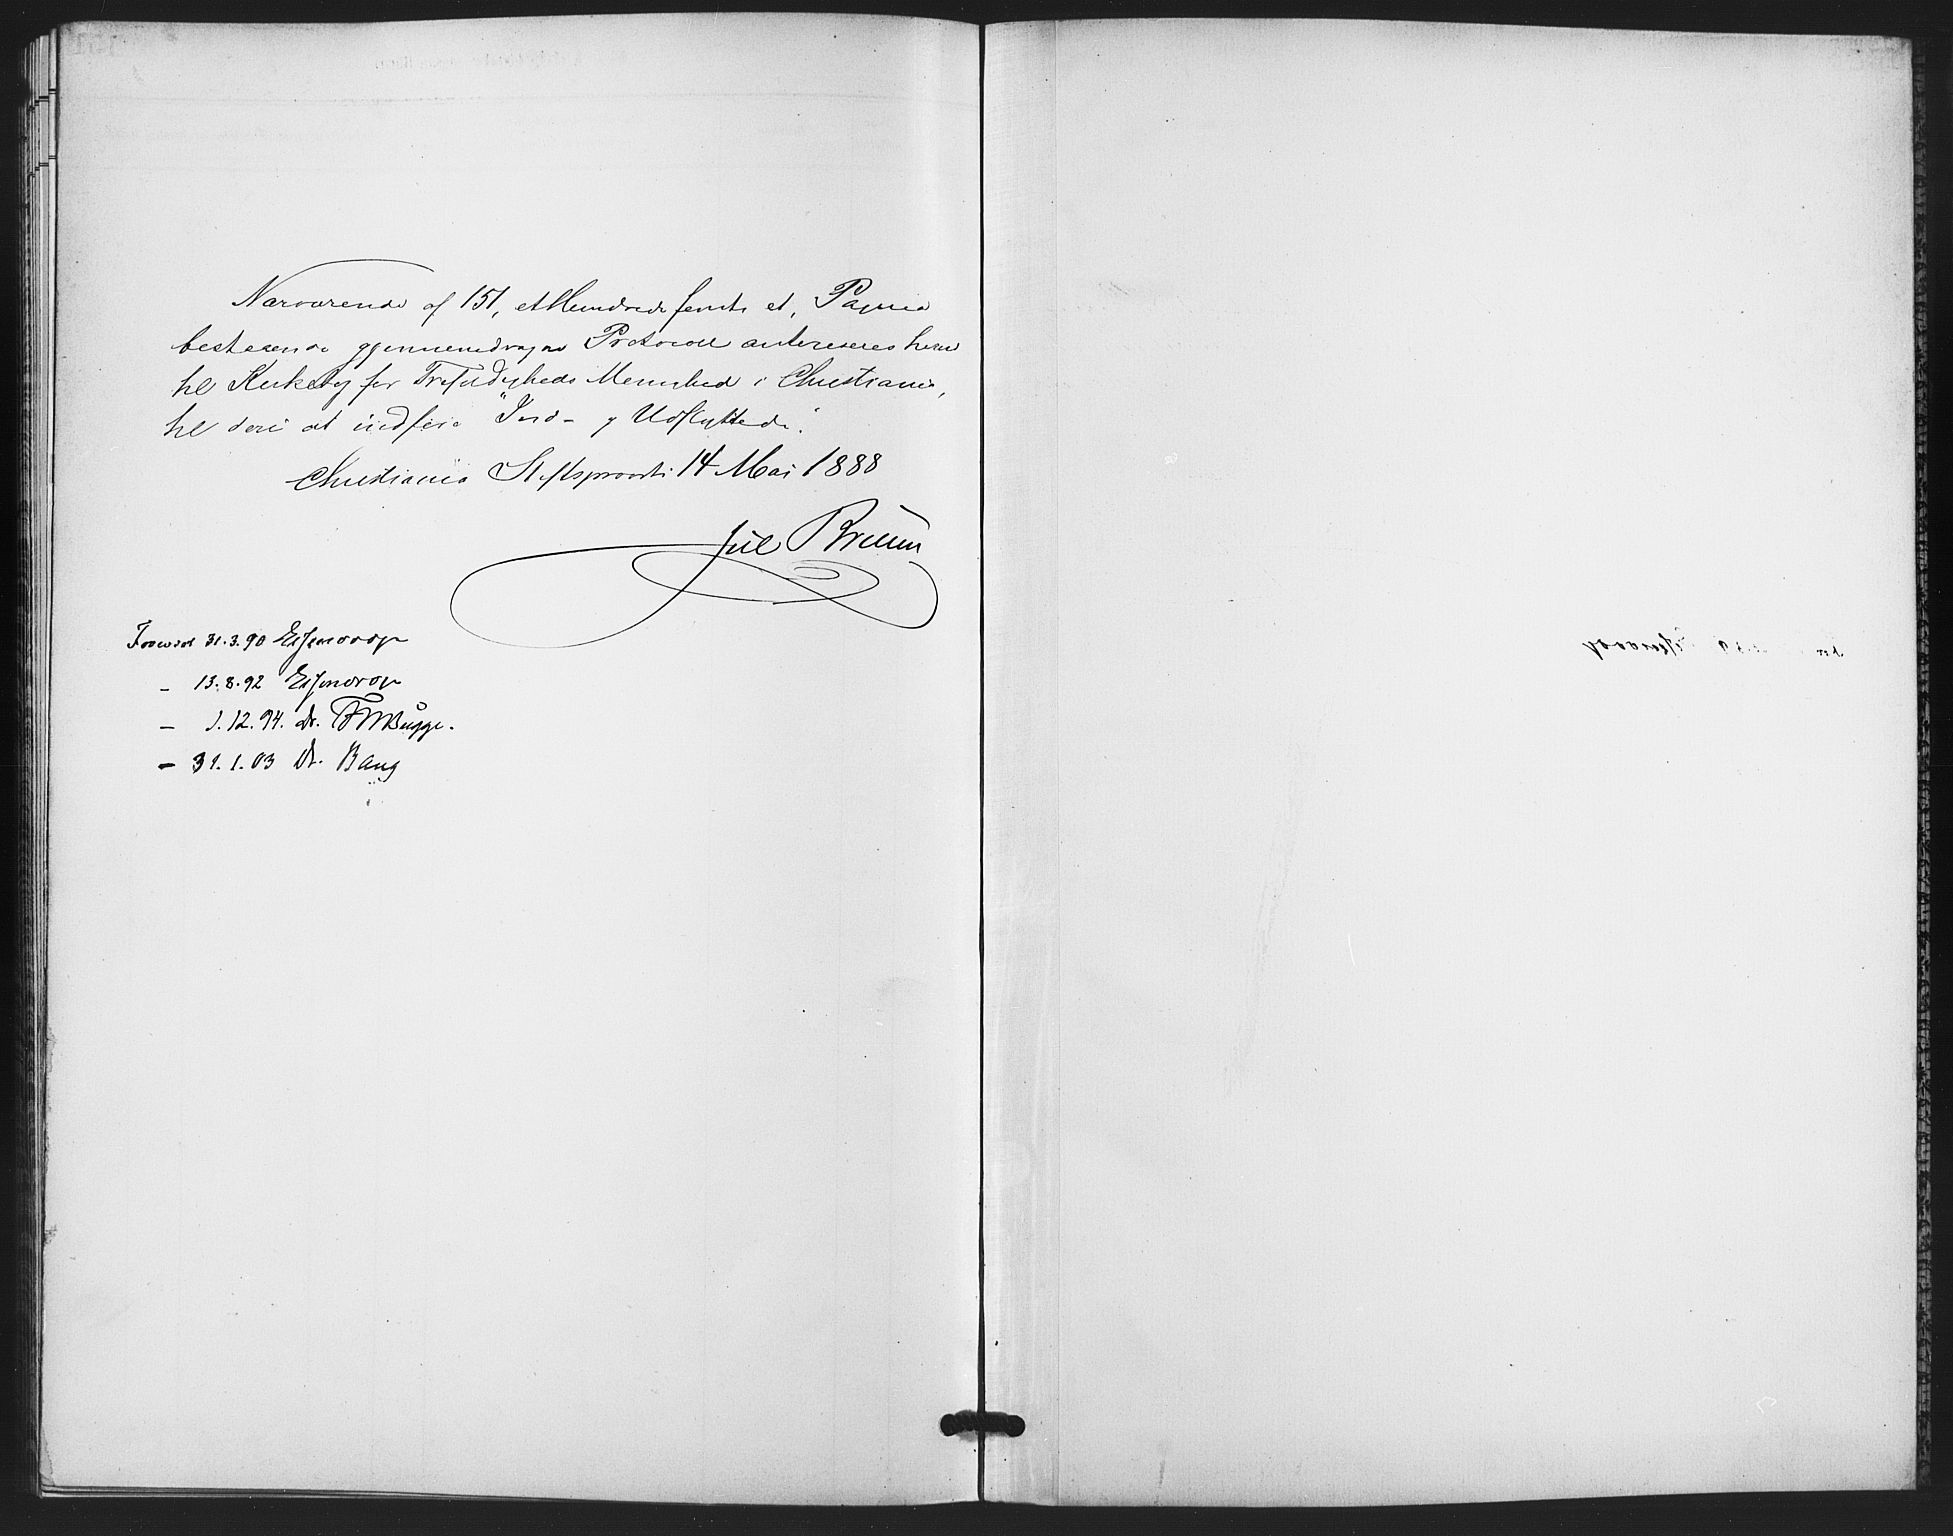 Nærværende af 151, et Hundrede femti et, Pagina
bestaaende gjennemdragne Protocol autoriseres herved
til Kirkebog for Trefoldigheds Menighed i Christiania,
til deri at indføre "Ind- og Udflyttede".
Christiania Stiftsprovsti 14 Mai 1888
Jul Bruun
Foreviist 31.3.90 Essendrop
- 13.8.92 Essendrop
- 1.12.94. Dr. FWBugge.
- 31.1.03 Dr. Bang